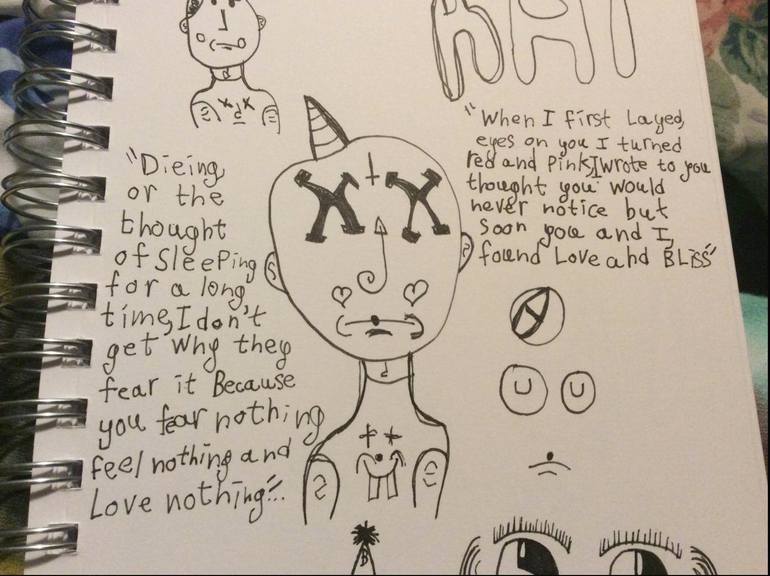 RAT
"When I first Layed,
eyes on you I turned
red and pink,I wrote to you
thought you would
never notice but
soon you and I,
found Love and BLiss"
"Dieing,
or the
thought
of sleeping
for a long
time, I don't
get why they
fear it Because
you fear nothing
feel nothing and
Love nothing"..
B